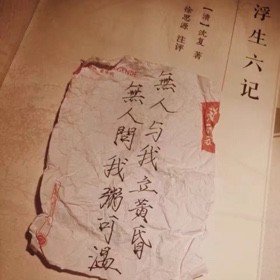 浮生六记
【清】沈复 著
徐思源 注评
無人与我立黄昏
無人問我粥可温